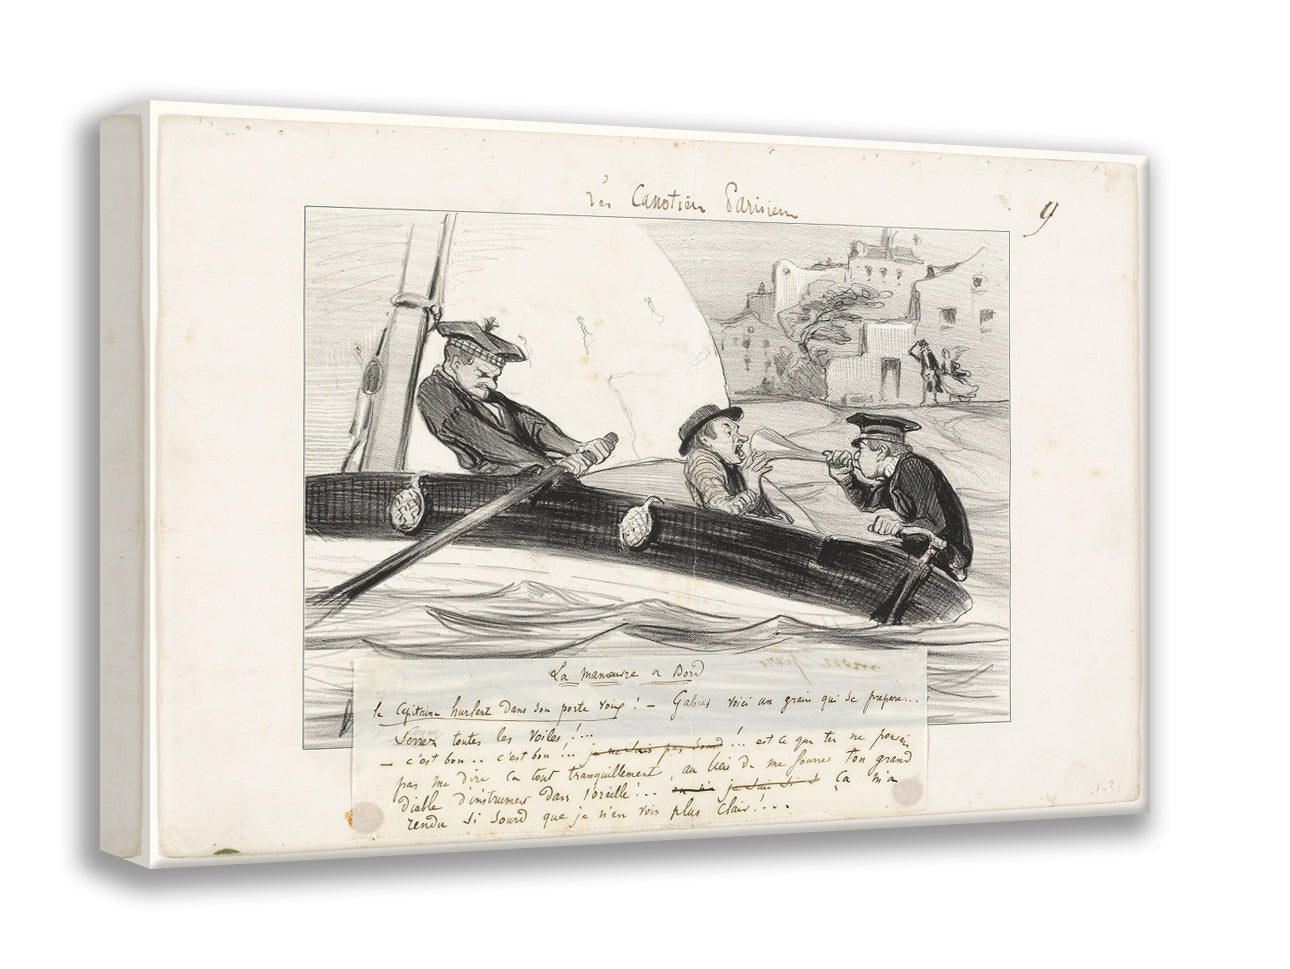 Les Canotiers Parisiens
9
La manœuvre a Bord
le Capitaine hurlant dans son porte voix ! — Gabiers voici un grain qui se prépare...
Serrez toutes les voiles !...
— c'est bon .. c'est bon !... je ne suis pas sourd !! est ce que tu ne pouvais
pas me dire ça tout tranquillement, au lieu de me fourrer ton grand
diable d'instrument dans l'oreille !... je suis si ça m'a
rendu si sourd que je n'en vois plus clair !...